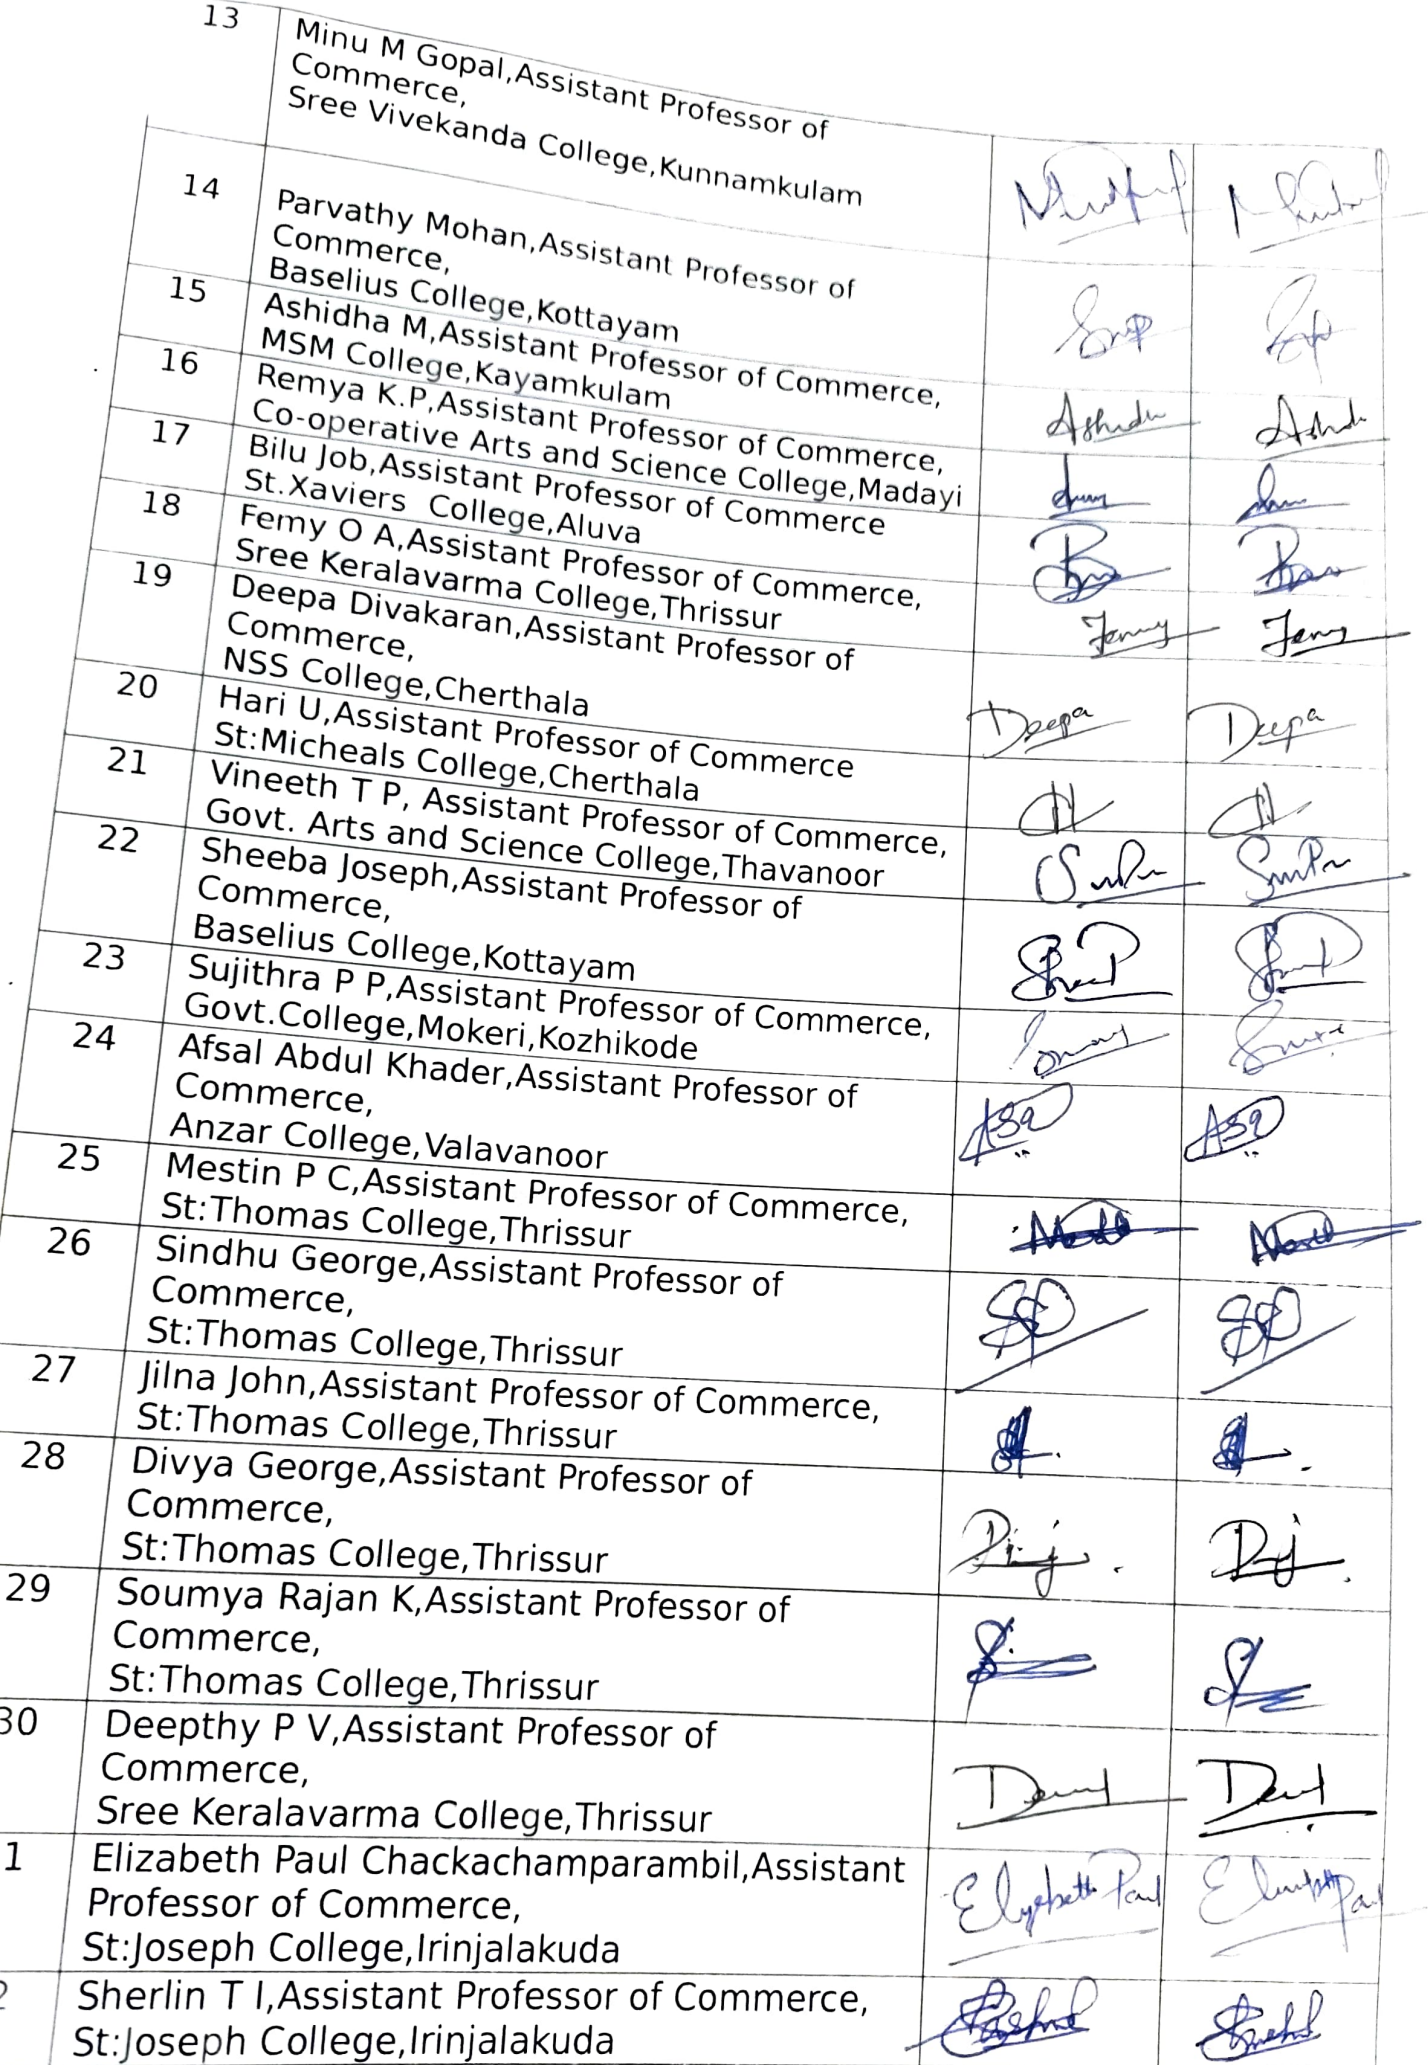 13
Minu M Gopal,Assistant Professor of
Commerce,
Sree Vivekanda College,Kunnamkulam
14
Parvathy Mohan,Assistant Professor of
Commerce,
Baselius College,Kottayam
15
Ashidha M,Assistant Professor of Commerce,
MSM College,Kayamkulam
16
Remya K.P,Assistant Professor of Commerce,
Co-operative Arts and Science College,Madayi
17
Bilu Job,Assistant Professor of Commerce
St.Xaviers College,Aluva
18
Femy O A,Assistant Professor of Commerce,
Sree Keralavarma College,Thrissur
19
Deepa Divakaran,Assistant Professor of
Commerce,
NSS College,Cherthala
Deepa Deepa
20
Hari U,Assistant Professor of Commerce
St:Micheals College,Cherthala
21
Vineeth T P, Assistant Professor of Commerce,
Govt. Arts and Science College,Thavanoor
22
Sheeba Joseph,Assistant Professor of
Commerce,
Baselius College,Kottayam
23
Sujithra P P,Assistant Professor of Commerce,
Govt.College,Mokeri,Kozhikode
24
Afsal Abdul Khader,Assistant Professor of
Commerce,
Anzar College,Valavanoor
25
Mestin P C,Assistant Professor of Commerce,
St:Thomas College,Thrissur
26
Sindhu George,Assistant Professor of
Commerce,
St:Thomas College,Thrissur
27
Jilna John,Assistant Professor of Commerce,
St:Thomas College,Thrissur
28
Divya George,Assistant Professor of
Commerce,
St:Thomas College,Thrissur
29
Soumya Rajan K,Assistant Professor of
Commerce,
St:Thomas College,Thrissur
30
Deepthy P V,Assistant Professor of
Commerce,
Sree Keralavarma College,Thrissur
1
Elizabeth Paul Chackachamparambil,Assistant
Professor of Commerce,
St:Joseph College,Irinjalakuda
2
Sherlin T I,Assistant Professor of Commerce,
St:Joseph College,Irinjalakuda